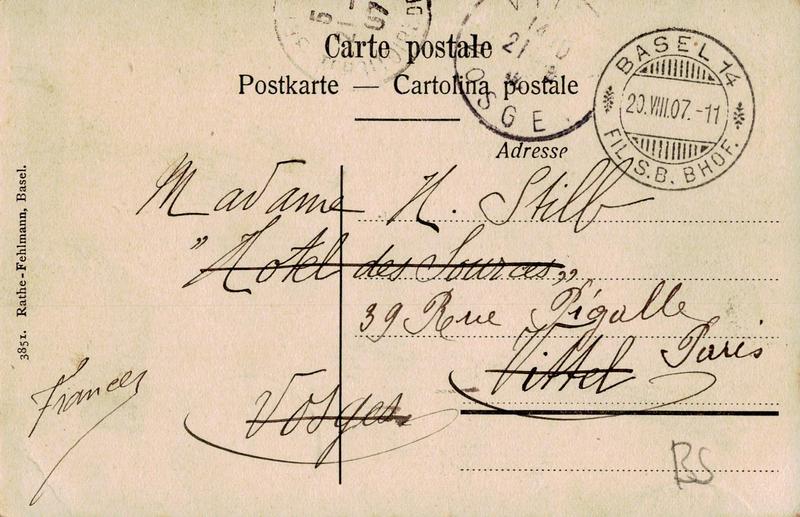 Carte postale
Postkarte — Cartolina postale
Adresse
BASEL 14
20.VIII.07.-11
FIL.S.B. BHOF.
14
21
OSGE
5
21
07
Madame H. Stilb
"Hotel des Sources"
39 Rue Pigalle
Vittel Paris
Vosges
France
3851. Rathe-Fehlmann, Basel.
BS